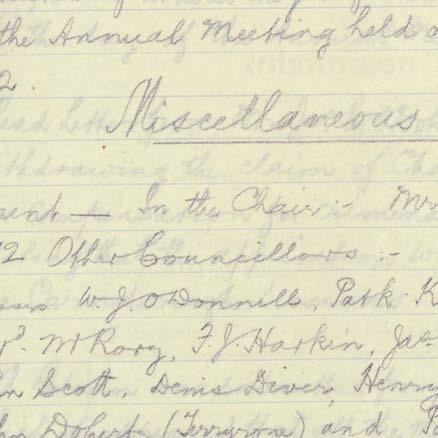 the Annual Meeting held
2.
Miscellaneous
sent — In the Chair :- Mr
12 Other Councillors :-
W. J. O'Donnell, Patk. K
McRory, F. J. Harkin, Jas
n Scott, Denis Diver, Henry
hn Doherty (Terryrone) and P